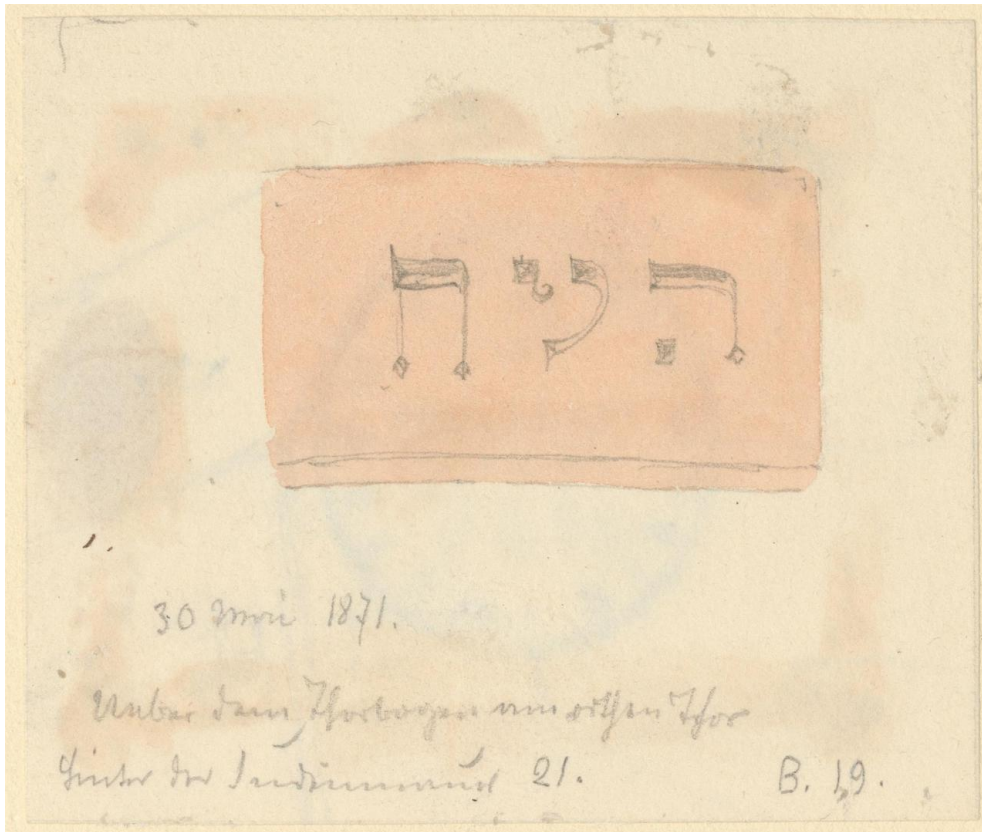 30 Mai 1871.
Ueber dem Thorbogen am rothen Thor
Hinter der Judenmauer 21. B. 19.